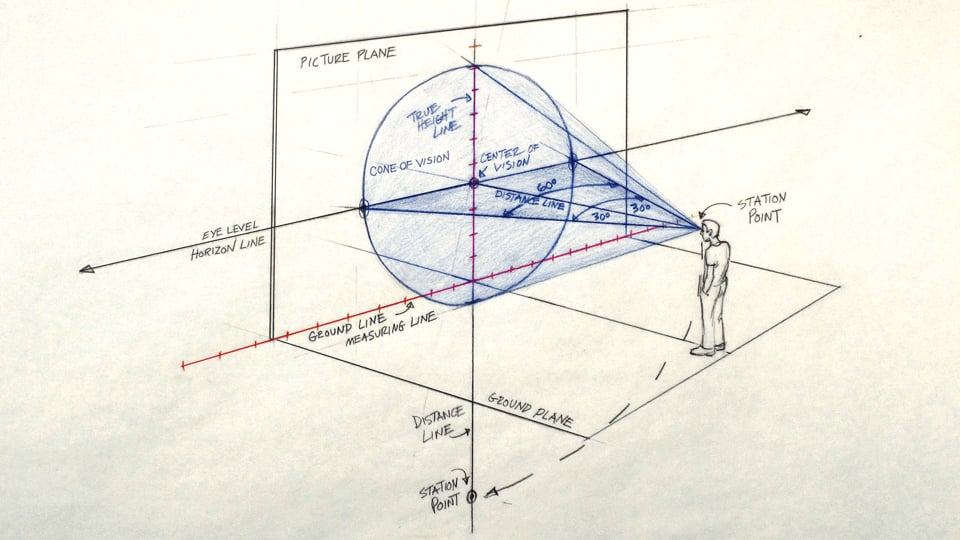 PICTURE PLANE
TRUE
HEIGHT
LINE
CONE OF VISION
CENTER OF
VISION
60°
DISTANCE LINE
30°
30°
STATION
POINT
EYE LEVEL
HORIZON LINE
GROUND LINE
MEASURING LINE
GROUND PLANE
DISTANCE
LINE
STATION
POINT